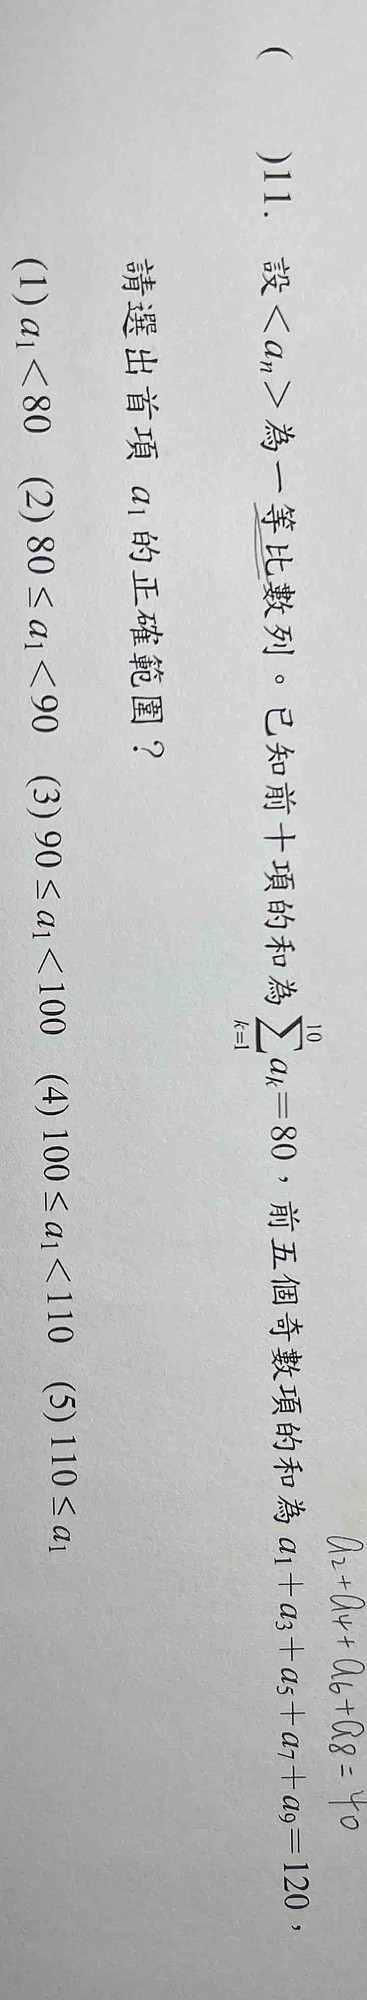 a₂+a₄+a₆+a₈=40
(　　)11. 設<aₙ>為一等比數列。已知前十項的和為 \sum_{k=1}^{10} aₖ=80，前五個奇數項的和為 a₁+a₃+a₅+a₇+a₉=120，
請選出首項 a₁ 的正確範圍？
(1) a₁<80　(2) 80≤a₁<90　(3) 90≤a₁<100　(4) 100≤a₁<110　(5) 110≤a₁